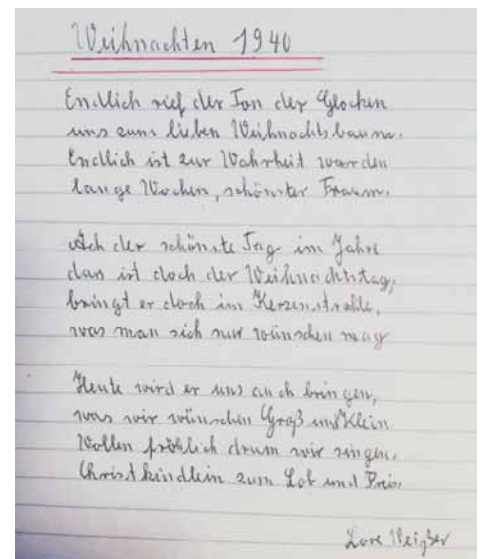 Weihnachten 1940
Endlich rief der Ton der Glocken
uns zum lieben Weihnachtsbaum.
Endlich ist zur Wahrheit worden
lange Wochen, schönster Traum.
Ach der schönste Tag im Jahre
das ist doch der Weihnachtstag,
bringt er doch im Kerzenstrahle,
was man sich nur wünschen mag
Heute wird er uns auch bringen,
was wir wünschen Groß und Klein
Wollen fröhlich drum wir singen,
Christkindlein zum Lob und Preis.
Lore